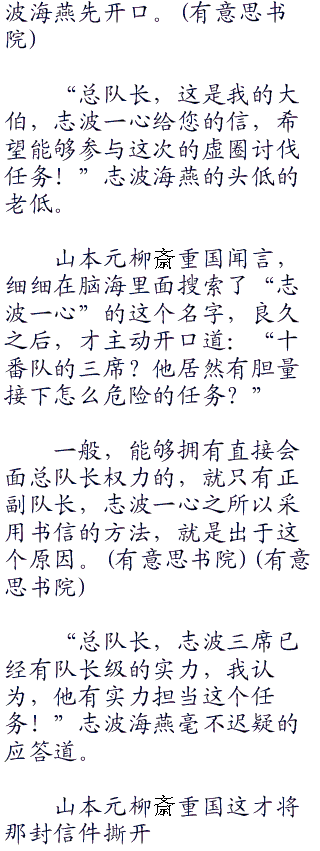 波海燕先开口。(有意思书
院)
“总队长，这是我的大
伯，志波一心给您的信，希
望能够参与这次的虚圈讨伐
任务！”志波海燕的头低的
老低。
山本元柳斎重国闻言，
细细在脑海里面搜索了“志
波一心”的这个名字，良久
之后，才主动开口道：“十
番队的三席？他居然有胆量
接下怎么危险的任务？”
一般，能够拥有直接会
面总队长权力的，就只有正
副队长，志波一心之所以采
用书信的方法，就是出于这
个原因。(有意思书院)(有意
思书院)
“总队长，志波三席已
经有队长级的实力，我认
为，他有实力担当这个任
务！”志波海燕毫不迟疑的
应答道。
山本元柳斎重国这才将
那封信件撕开